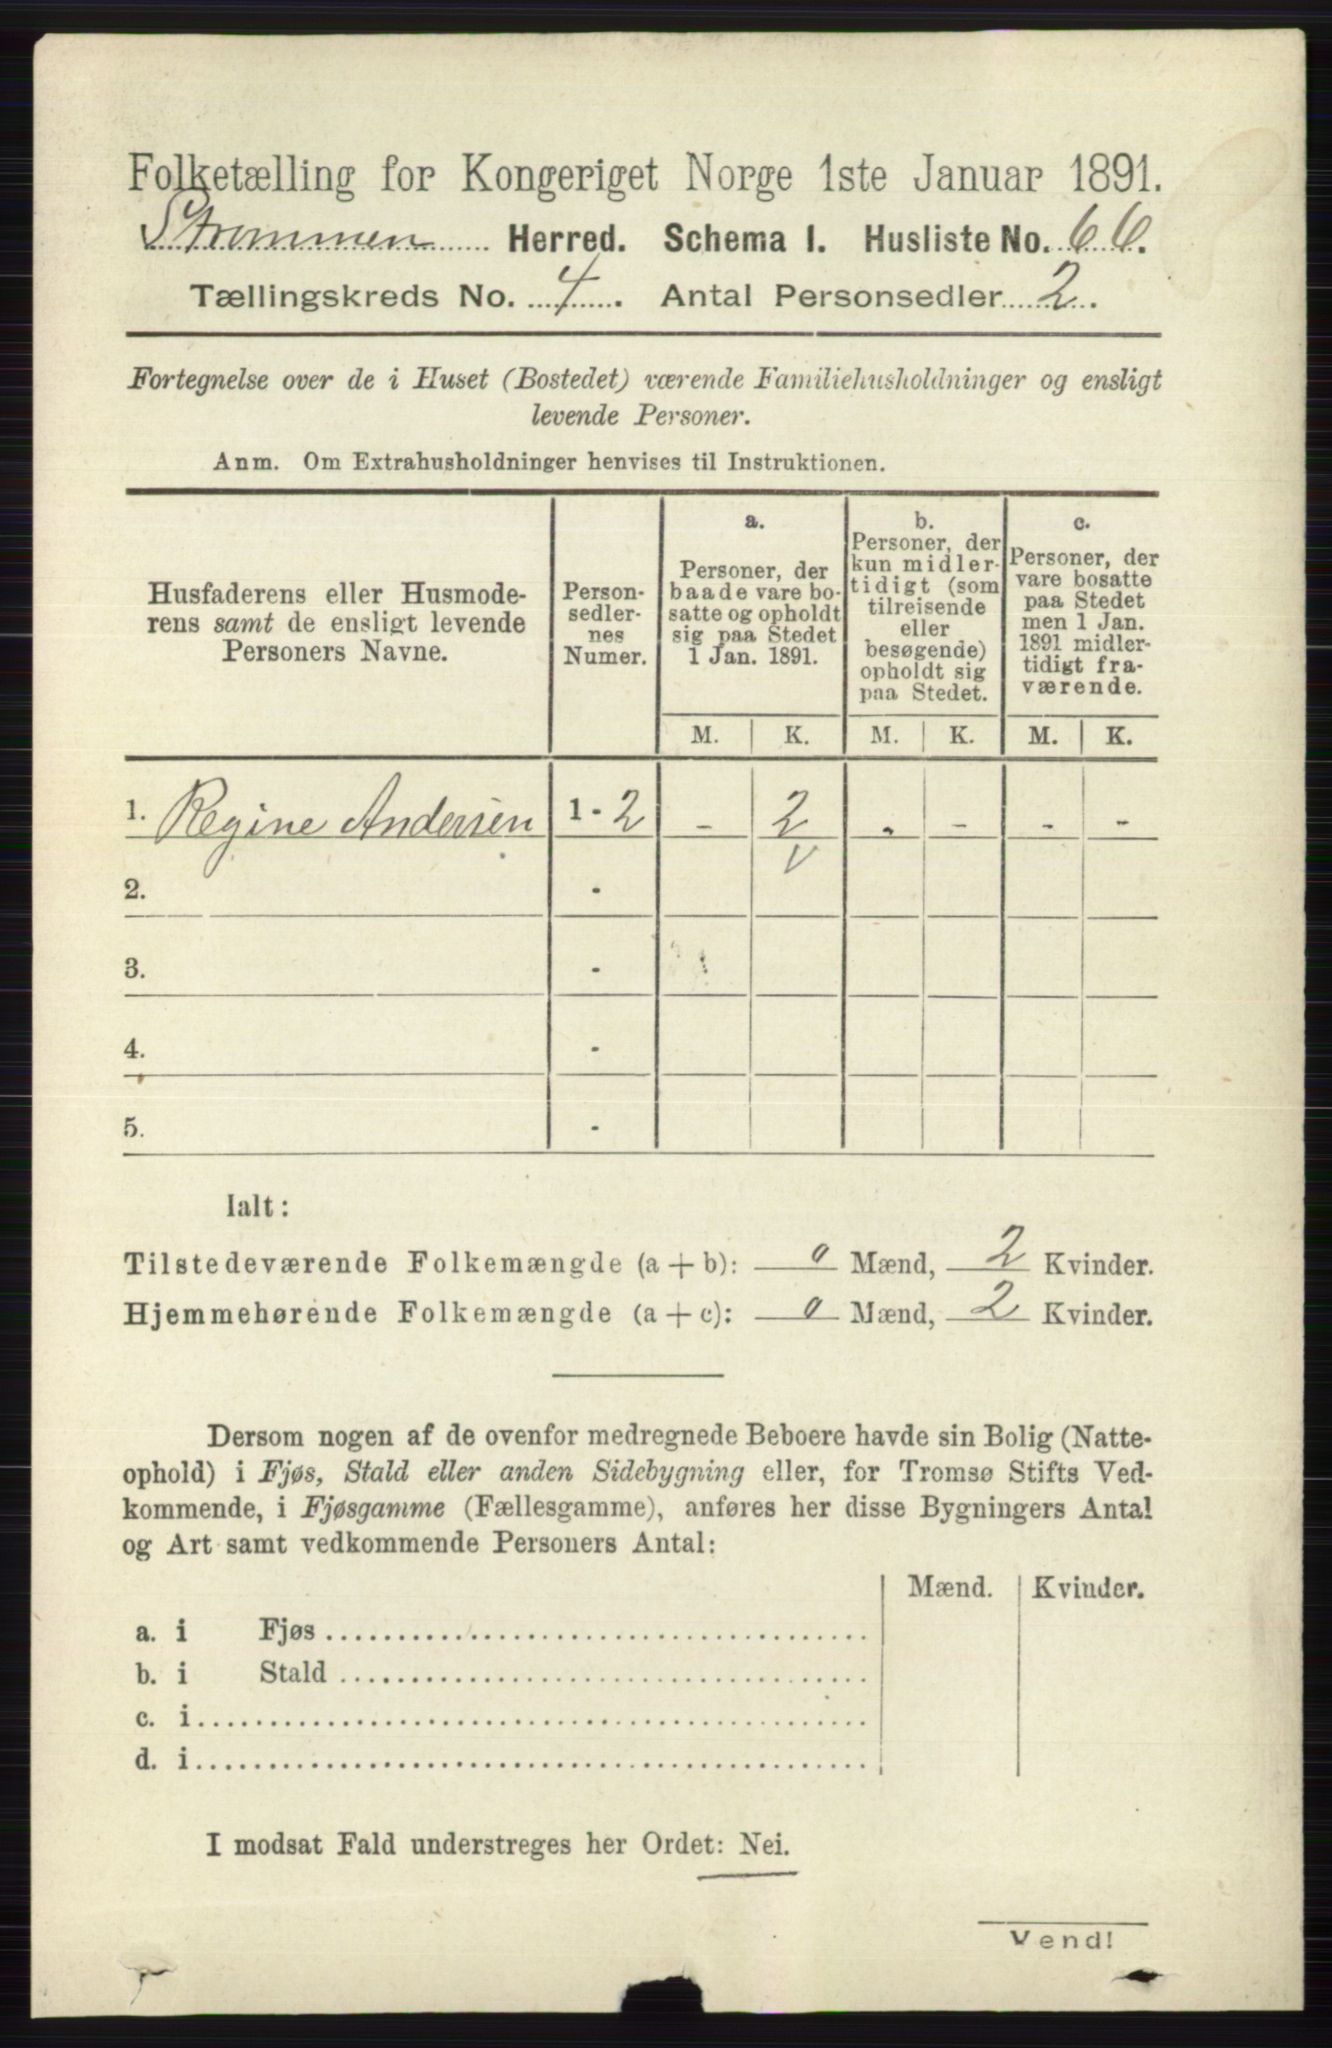 Folketælling for Kongeriget Norge 1ste Januar 1891.
Strømmen Herred. Schema 1. Husliste No. 66.
Tællingskreds No. 4. Antal Personsedler 2.
Fortegnelse over de i Huset (Bostedet) værende Familiehusholdninger og ensligt
levende Personer.
Anm. Om Extrahusholdninger henvises til Instruktionen.
Husfaderens eller Husmode-
rens samt de ensligt levende
Personers Navne.
Person-
sedler-
nes
Numer.
a.
Personer, der
baade vare bo-
satte og opholdt
sig paa Stedet
1 Jan. 1891.
b.
Personer, der
kun midler-
tidigt (som
tilreisende
eller
besøgende)
opholdt sig
paa Stedet.
c.
Personer, der
vare bosatte
paa Stedet
men 1 Jan.
1891 midler-
tidigt fra-
værende.
M. K. M. K. M. K.
1. Regine Andersen 1 - 2 - 2 - - - -
2. -
3. -
4. -
5. -
Ialt:
Tilstedeværende Folkemængde (a + b): 0 Mænd, 2 Kvinder.
Hjemmehørende Folkemængde (a + c): 0 Mænd, 2 Kvinder.
Dersom nogen af de ovenfor medregnede Beboere havde sin Bolig (Natte-
ophold) i Fjøs, Stald eller anden Sidebygning eller, for Tromsø Stifts Ved-
kommende, i Fjøsgamme (Fællesgamme), anføres her disse Bygningers Antal
og Art samt vedkommende Personers Antal:
Mænd. Kvinder.
a. i Fjøs
b. i Stald
c. i
d. i
I modsat Fald understreges her Ordet: Nei.
Vend!